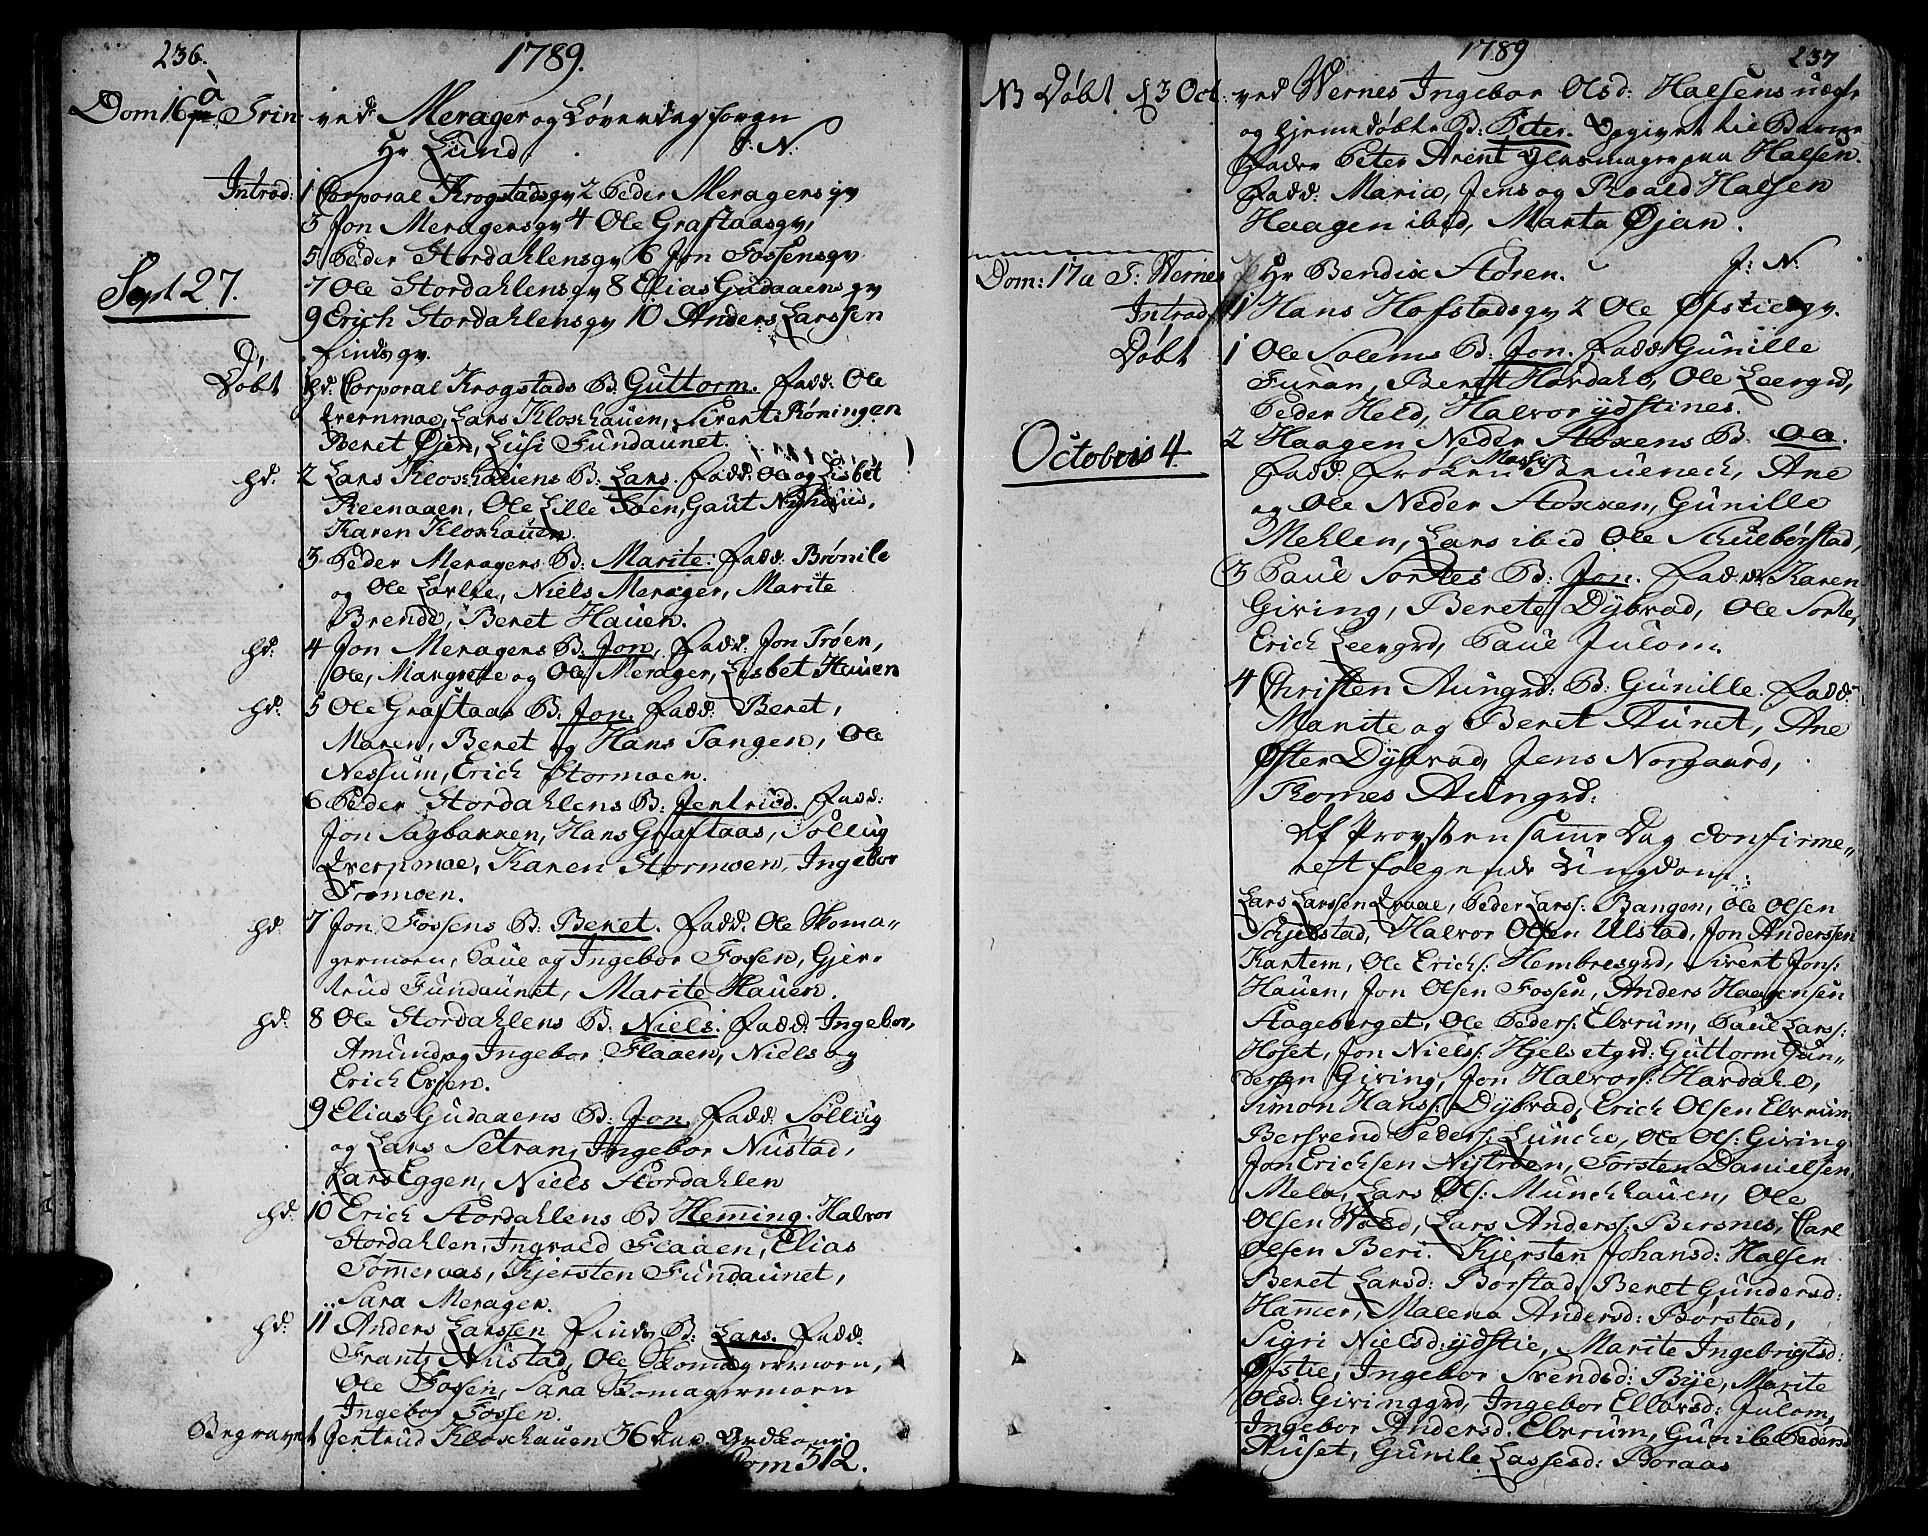 236.
1789.
Dom 16 à Trin: ved Merager og Løverdag forgn
Hr Lund. J: N:
Introd: 1 Corporal Krogstadsgv 2 Peder Meragersgv
3 Jon Meragersgv 4 Ole Graftaasgv,
5 Peder Stordahlensgv 6 Jon Fossensgv
Sept 27.
7 Ole Stordahlensgv 8 Elias Gudaaens gv
9 Erich Stordahlensgv 10 Anders Larssen
Findsgv.
Døbt hd. Corporal Krogstads B: Guttorm. Fadd: Ole
Lars Kloxhauen, Sivert Røningen
Beret Øjen, Lusi Fundaunet.
hd. 2 Lars Kloxhauens B: Lars. Fadd: Ole og Lisbet
Reenaaen, Ole Lille Øien, Gaut
Karen Kloxhauen.
3 Peder Meragers B: Marite. Fadd: Brønile
og Ole, Niels Merager, Marite
Brende, Beret Hauen.
hd: 4 Jon Meragers B: Jon. Fadd: Jon Trøen,
Ole, Margrete og Ole Merager, Lisbet Hauen
hd: 5 Ole Graftaas B: Jon. Fadd: Beret,
Maren, Beret og Hans Tangen, Ole
Nessum, Erich Stormoen.
6 Peder Stordahlens B: Jertrud. Fadd:
Jon Sagbakken, Hans Graftaas, Sollug
Qvernmoe, Karen Stormoen, Ingebor
Tromoen.
hd. 7 Jon Fossens B: Beret. Fadd. Ole Skoma-
germoen, Paul og Ingebor Fossen, Gjer-
trud Fundaunet, Marite Hauen.
hd: 8 Ole Stordahlens B: Niels. Fadd: Ingebor,
Amund og Ingebor Flaaen, Niels og
Erich Evjen.
9 Elias Gudaaens B: Jon. Fadd: Sollug
og Lars Setran, Ingebor Nustad,
Lars Eggen, Niels Stordahlen
hd: 10 Erich Stordahlens B Hemming. Halvor
Stordahlen, Ingvald Flaaen, Elias
Tømervas, Kjersten Fundaunet,
Sara Merager.
hd: 11 Anders Larssen Finds B: Lars. Fadd:
Frants Nustad, Ole Skomagermoen,
Ole Fossen, Sara Skomagermoen
Ingebor Fossen.
Begravet Jertrud Kloxhauen 36 Aar
312.
1789
237
NB Døbt d 3 Oct: ved Wernes Ingebor Olsd: Halsens uægte
og hjemedøbte B: Peter. Opgivet til Barne
Fader Peter Arent Glasmager paa Halsen.
Fadd: Maria, Jens og Roald Halsen
Haagen ibid, Marta Øjan.
Dom: 17 a T: Wernes Hr Bendix Støren. J: N:
Introd. 1 Hans Hofstadsgv 2 Ole Øfstiegv.
Døbt 1 Ole Solems B: Jon. Fadd: Gunille
Furan, Beret Hordahl, Ole Leergrd,
Peder Held, Halvor Ydstines.
Octobris 4.
2 Haagen Neder Stoxens B. Ole.
Fadd: Frøken Massi Brueneck, Ane
og Ole Neder Stoxen, Gunille
Mehlen, Lars ibid Ole Skulbørstad,
3 Paul Sortes B: Jon. Fadd: Karen
Giving, Berete Dybvad, Ole Sorte,
Erich Leergrd, Paul Julom.
4 Christen Aungrd: B: Gunille. Fadd:
Marite og Beret Aunet, Ane
Øster Dybvad, Jens Norgaard,
Thomes Aungrd:
Af Provsten samme Dag Confirme-
ret følgende Ungdom:
Lars Larssen Qvaal, Peder Larss: Bangen, Ole Olsen
Schjelstad, Halvor Olsen Ulstad, Jon Anderssen
Kartem, Ole Erichs: Hembresgrd, Sivert Jons:
Hauen, Jon Olsen Fossen, Anders Haagensen
Stageberget, Ole Peders: Elvrum, Paul Larss:
Hoset, Jon Niels: Hjelsetgrd: Guttorm Gun-
dersen Giving, Jon Halvors: Hordahl,
Simon Hans: Dybvad, Erich Olsen Elvrum
Bersvend Peders: Lunche, Ole Ols: Giving
Jon Erichsen Nystrøen, Torsten Danielsen
Mela, Lars Ols: Munchhauen, Ole
Olsen, Lars Anders: Bersnes, Carl
Olsen Beri. Kjersten Johansd: Halsen
Beret Larsd: Borstad, Beret Gundersd:
Hammer, Malena Andersd: Børstad,
Sigri Nielsd: Ydstie, Marite Ingebrigtsd:
Øfstie, Ingebor Svendsd: Bye, Marite
Olsd: Givinggrd, Ingebor Ellevsd: Julom,
Ingebor Andersd: Elvrum, Gunile Pedersd
Auset, Gunile Lassesd: Boraas